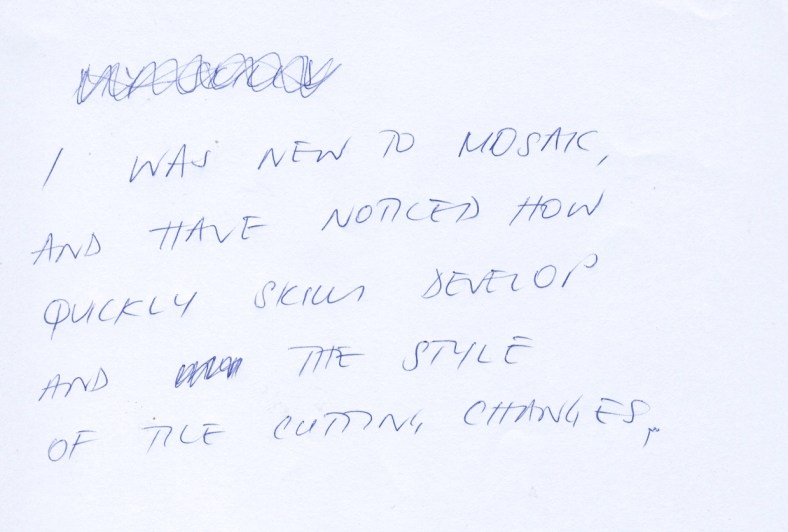 I WAS NEW TO MOSAIC,
AND HAVE NOTICED HOW
QUICKLY SKILLS DEVELOP
AND THE STYLE
OF TILE CUTTING CHANGES,